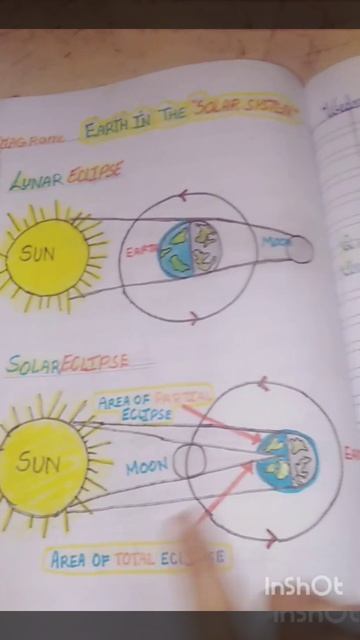 DIAGRAM EARTH IN THE "SOLAR SYSTEM"
LUNAR ECLIPSE
SUN
EARTH
MOON
SOLAR ECLIPSE
AREA OF PARTIAL
ECLIPSE
SUN
MOON
AREA OF TOTAL ECLIPSE
InShOt